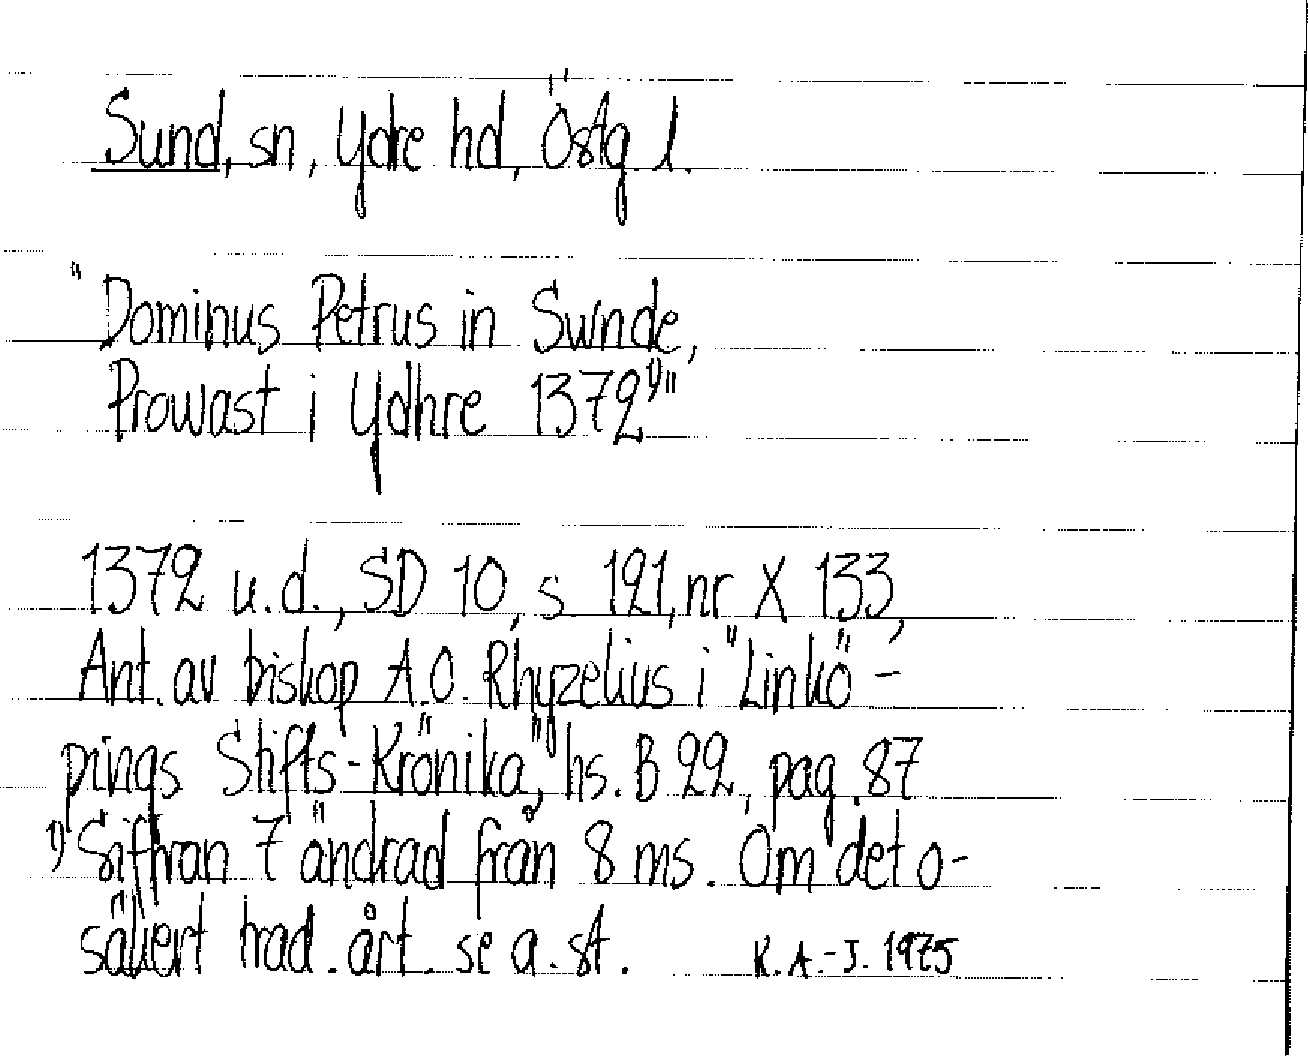 Sund, sn, Ydre hd, Östg. l.
"Dominus Petrus in Swnde,
Prowast i Ydhre 1372¹⁾"
1372 u.d., SD 10, s 121, nr X 133,
Ant. av biskop A.O. Rhyzelius i "Linkö-
pings Stifts-Krönika", hs. B 22, pag. 87
¹⁾ Siffran 7 ändrad från 8 ms. Om det o-
säkert trad. årt. se a. st. K. A.-J. 1975